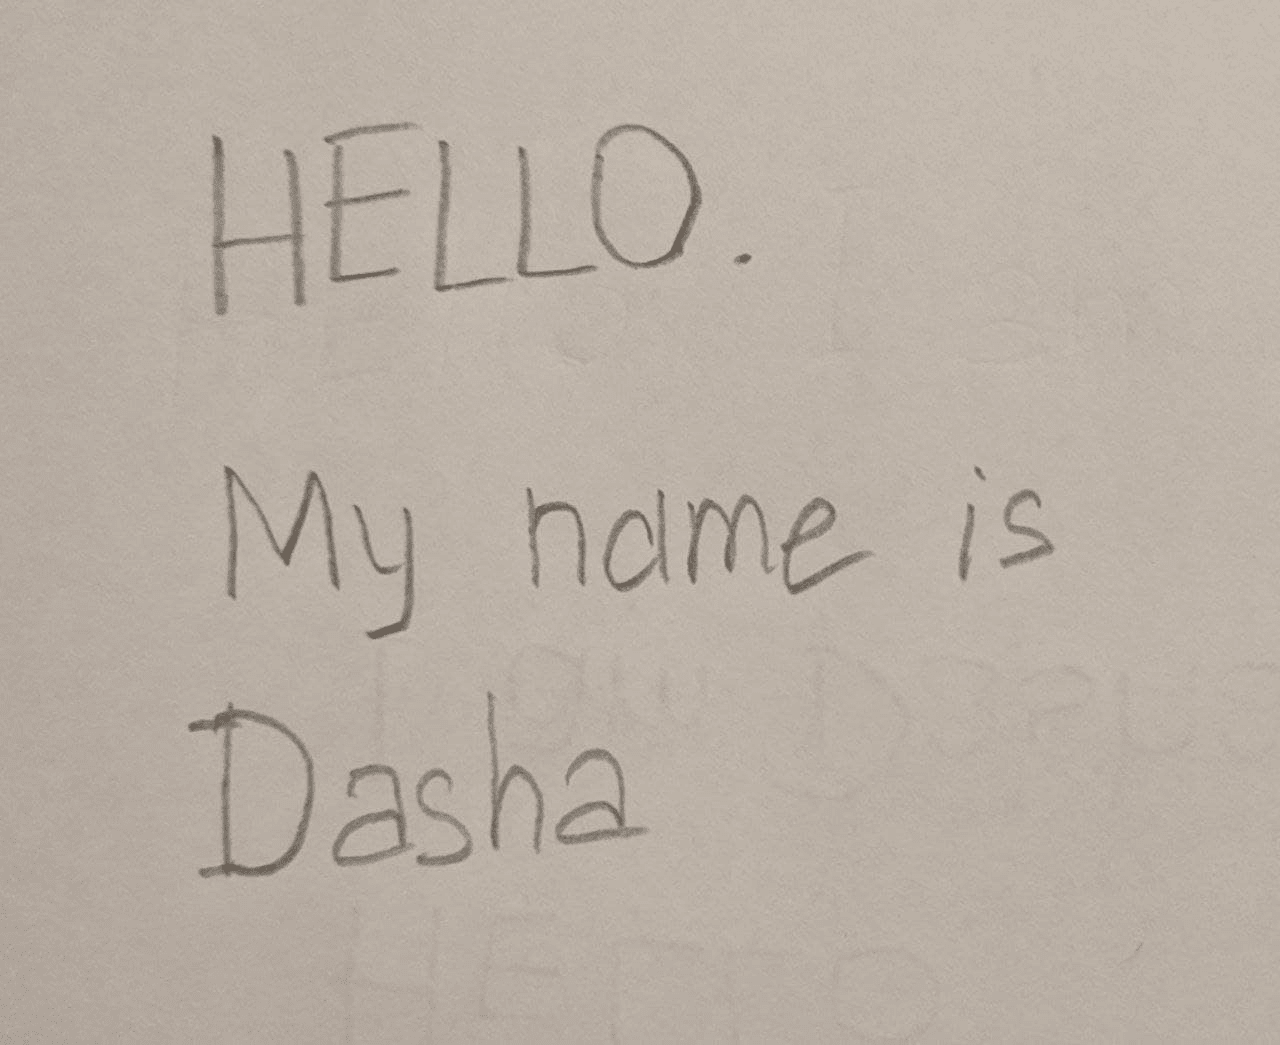 HELLO.
My name is
Dasha